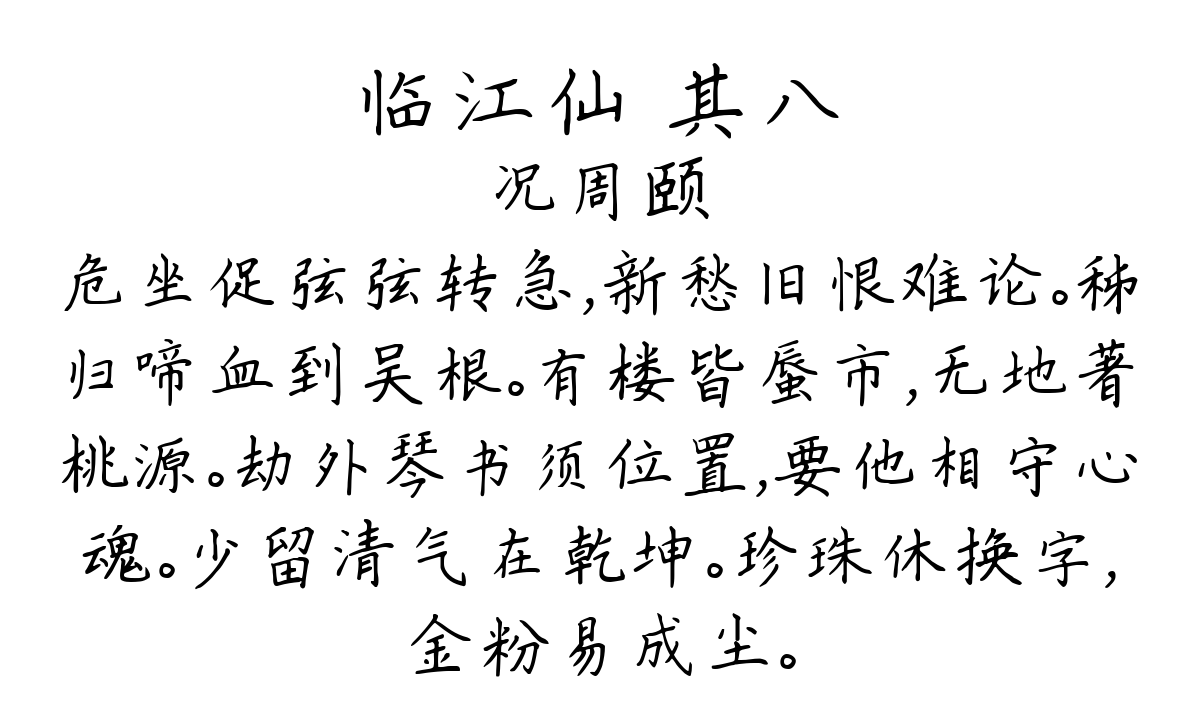 临江仙 其八
况周颐
危坐促弦弦转急,新愁旧恨难论。秭
归啼血到吴根。有楼皆蜃市,无地著
桃源。劫外琴书须位置,要他相守心
魂。少留清气在乾坤。珍珠休换字,
金粉易成尘。